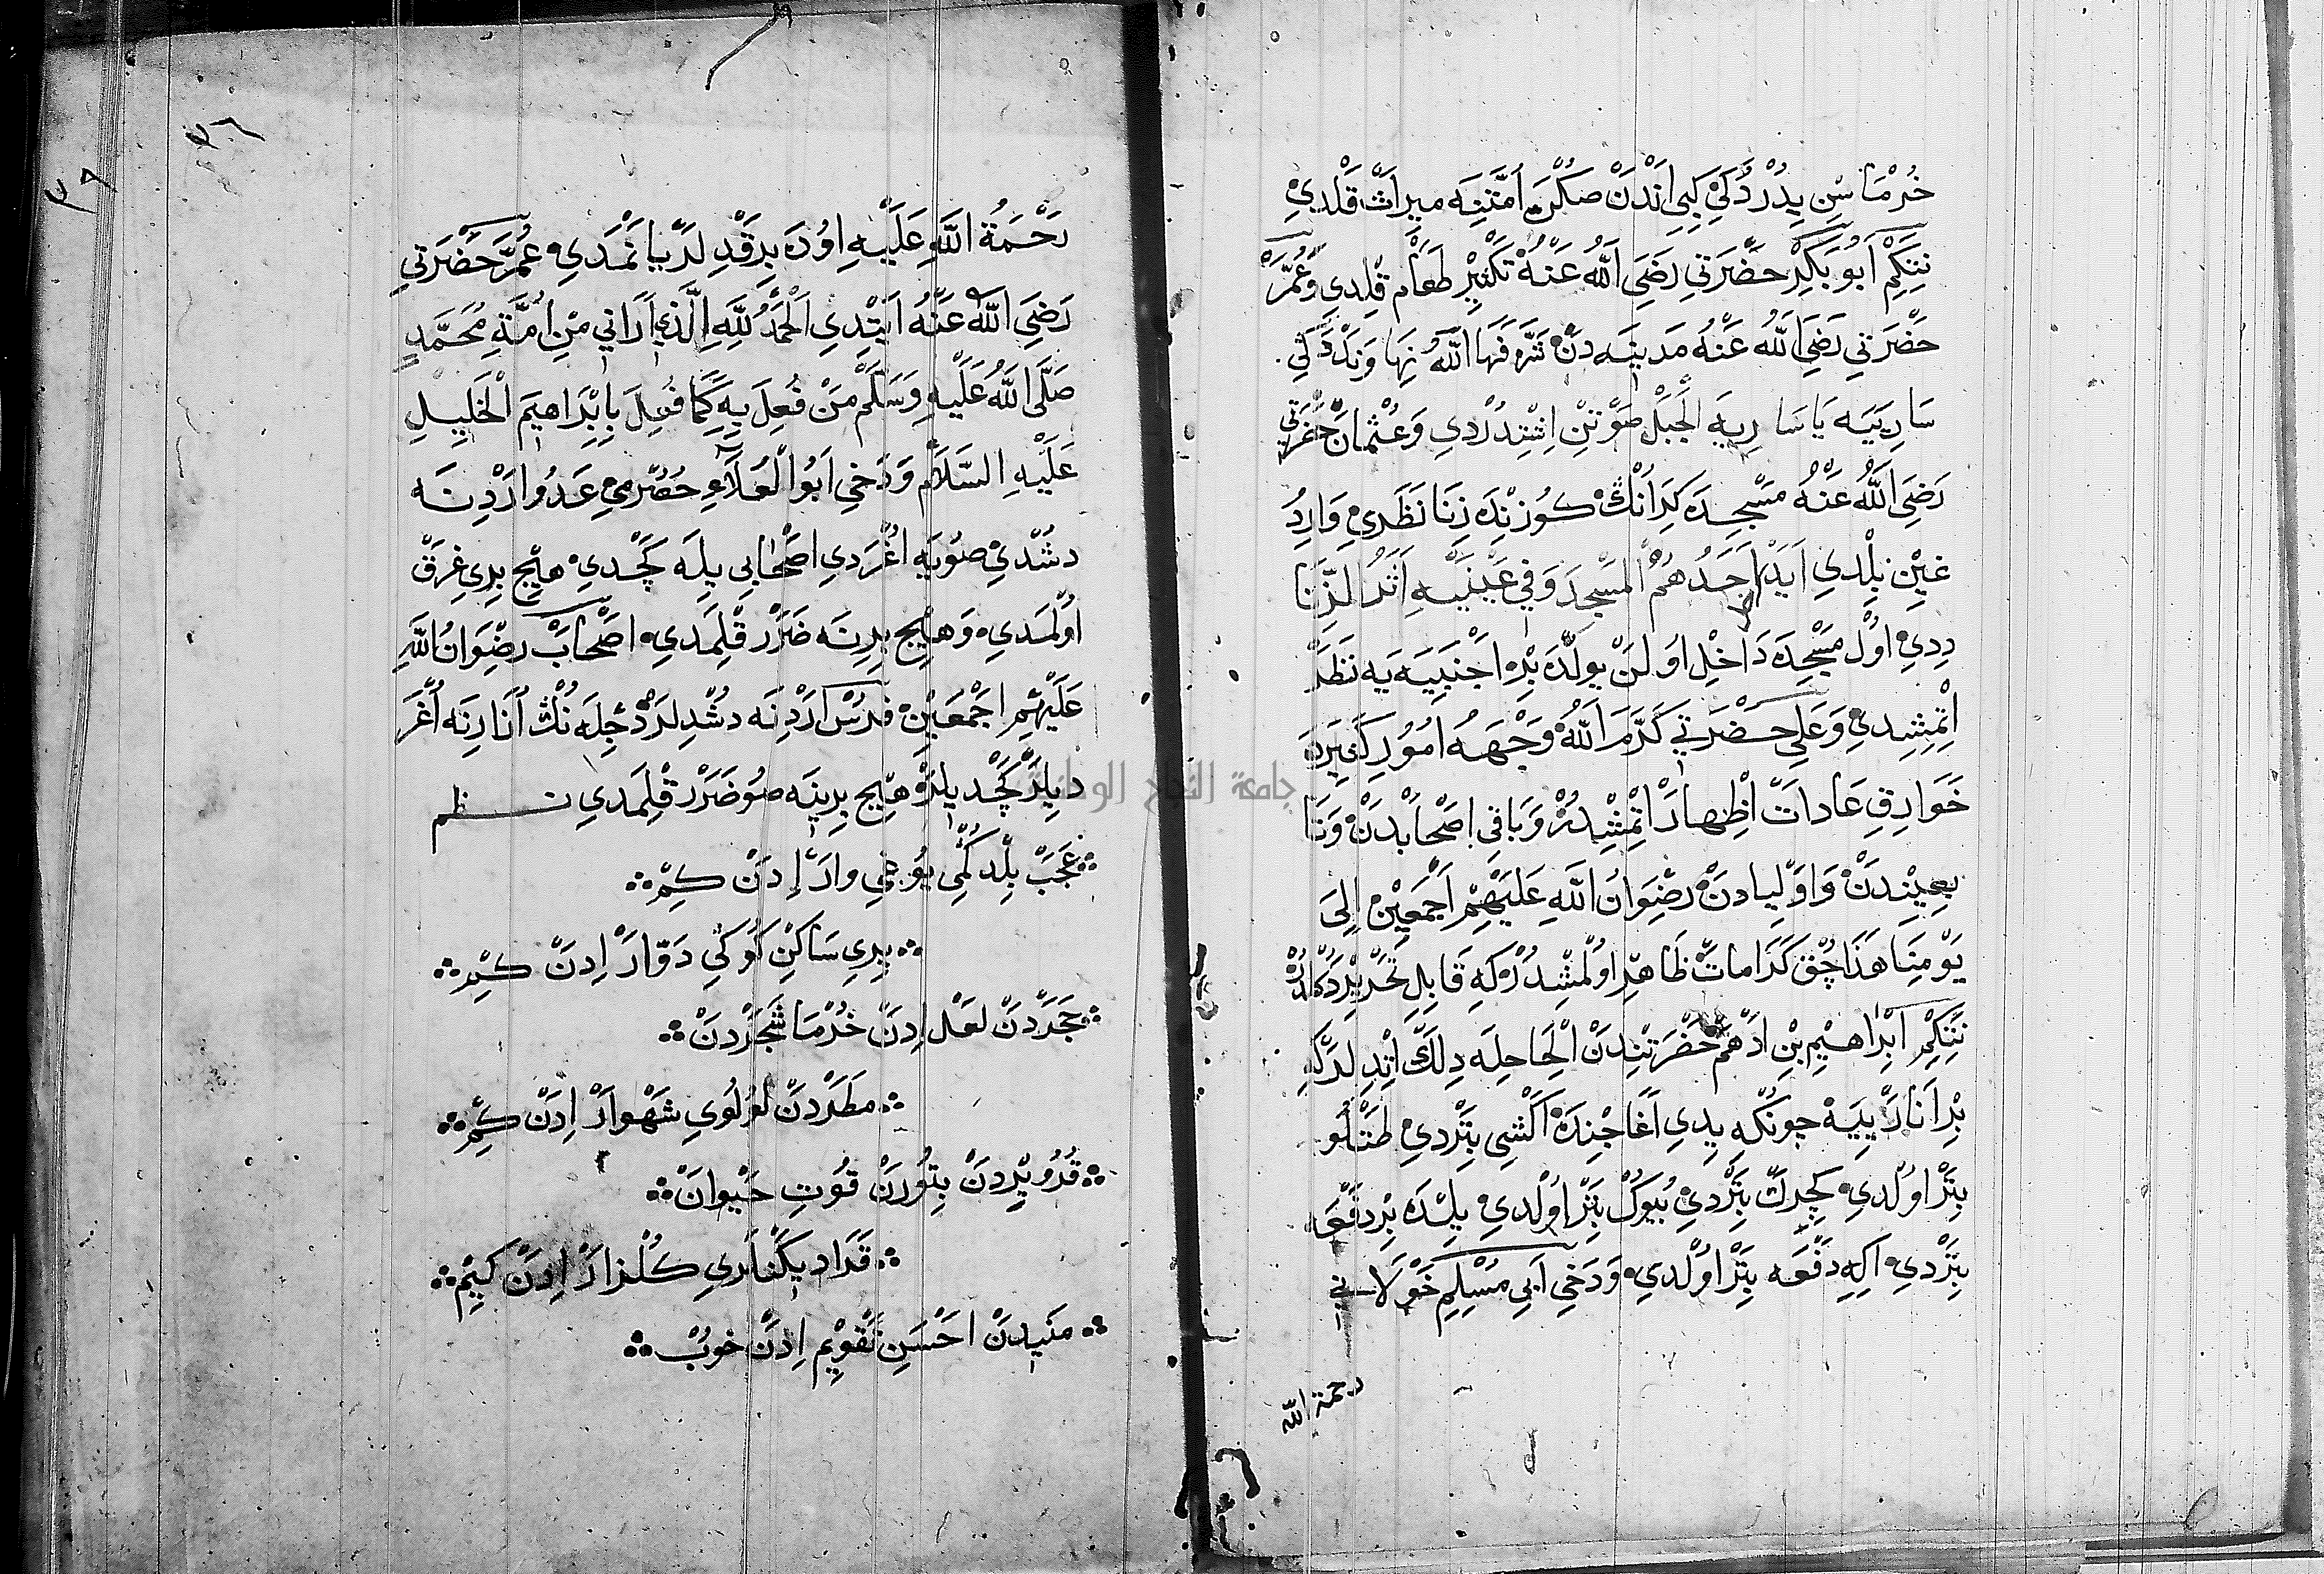 خُرْمَا سْنِ يِدُرْدُكِي كِبِي اَنْدَنْ صَكْرَ اُمَّتِنَه مِيرَاثْ قَلْدِي
نِتَكِمْ اَبُو بَكِرْ حَضْرَتِي رَضِيَ اللّٰهُ عَنْهُ تَكْثِيرْ طَعَامْ قِلْدِي وَعُمَرْ
حَضْرَتِي رَضِيَ اللّٰهُ عَنْهُ مَدِينَه دَنْ شَرَّفَهَا اللّٰهُ نِهَاوَنْدَكِي
سَارِيَيَه يَا سَارِيَه الْجَبَلْ صَوْتِنْ اِشْتِدُرْدِي وَعُثْمَانْ حَضْرَتِي
رَضِيَ اللّٰهُ عَنْهُ مَسْجِدَه كِرَانُكْ كُوزِنْدَه زِنَا نَظَرِي وَارِدُ
غِيْنِ بِلْدِي اَيَدْخُلُ اَحَدُهُمُ الْمَسْجِدَ وَفِي عَيْنَيْهِ اَثَرُ الزِّنَا
دِدِي اُولْ مَسْجِدَه دَاخِلْ اُولَنْ يُولْدَه بِرْ اَجْنَبِيَه يَه نَظَرْ
اِتْمِشِدِي وَعَلِي حَضْرَتِي كَرَّمَ اللّٰهُ وَجْهَهُ اُمُورِ كَثِيرَه
خَوَارِقِ عَادَاتْ اِظْهَارْ اِتْمِشْدُرْ وَبَاقِي اَصْحَابْدَنْ وَتَا
بِعِينْدَنْ وَاَوْلِيَادَنْ رِضْوَانُ اللّٰهِ عَلَيْهِمْ اَجْمَعِينْ اِلَى
يَوْمِنَا هَذَا چُقْ كَرَامَاتْ ظَاهِرْ اُولْمِشْدُرْ كِه قَابِلِ تَحْرِيرْ دَكُلْدُرْ
نِتَكِمْ اِبْرَاهِيمْ بِنْ اَدْهَمْ حَضْرَتِنْدَنْ اِلْحَاحِلَه دِلَكْ اِتْدِلَرْكِه
بِرْ اَنَارْ يِيَه چُونْكِه يِدِي اَغَاجِنْدَه اَكْشِي بِتَرْدِي طَتْلُو
بِتَرْ اُولْدِي كِچِرَكْ بِتَرْدِي بُيُوكْ بِتَرْ اُولْدِي يِلْدَه بِرْ دَفْعَه
بِتَرْدِي اِكِي دَفْعَه بِتَرْ اُولْدِي وَدَخِي اَبِي مُسْلِمِ خَوْلَانِي
رحمة الله
٣٦
رَحْمَةُ اللّٰهِ عَلَيْهِ اُودَه بِرَقْدِلَرْ يَانْمَدِي عُمَرْ حَضْرَتِي
رَضِيَ اللّٰهُ عَنْهُ اَيِتْدِي اَلْحَمْدُ لِلّٰهِ الَّذِي اَرَانِي مِنْ اُمَّةِ مُحَمَّدٍ
صَلَّى اللّٰهُ عَلَيْهِ وَسَلَّمْ مَنْ فُعِلَ بِهِ كَمَا فُعِلَ بِاِبْرَاهِيمَ الْخَلِيلِ
عَلَيْهِ السَّلَامْ وَدَخِي اَبُو الْعَلَاءِ حَضْرَمِي عَدُو اَرْدِنَه
دُشْدِي صُويَه اُغْرَدِي اَصْحَابِي بِلَه كَچْدِي هِيچْ بِرِي غَرَقْ
اُولْمَدِي وَهِيچْ بِرِنَه ضَرَرْ قِلْمَدِي اَصْحَابْ رِضْوَانُ اللّٰهِ
عَلَيْهِمْ اَجْمَعِينْ فَرَسْ اَرْدِنَه دُشْدِلَرْ دِجْلَه نُكْ اَنَارِنَه اُغْرَ
دِيلَرْ كَچْدِيلَرْ هِيچْ بِرِينَه صُو ضَرَرْ قِلْمَدِي نظم
عَجَبْ بِلْدِكْمِي يُوغِي وَارْ اِدَنْ كِمْ
يِرِي سَاكِنْ كُوكِي دَوَّارْ اِدَنْ كِمْ
حَجَرْدَنْ لَعْلْ اِدَنْ خُرْمَا شَجَرْدَنْ
مَطَرْدَنْ لُؤْلُؤِي شَهْوَارْ اِدَنْ كِمْ
قُرُو يِرْدَنْ بِتُورَنْ قُوتِ حَيْوَانْ
قَرَا دِيكَنْلَرِي كُلْزَارْ اِدَنْ كِيمْ
مَنِيدَنْ اَحْسَنِ تَقْوِيمْ اِدَنْ خُوبْ